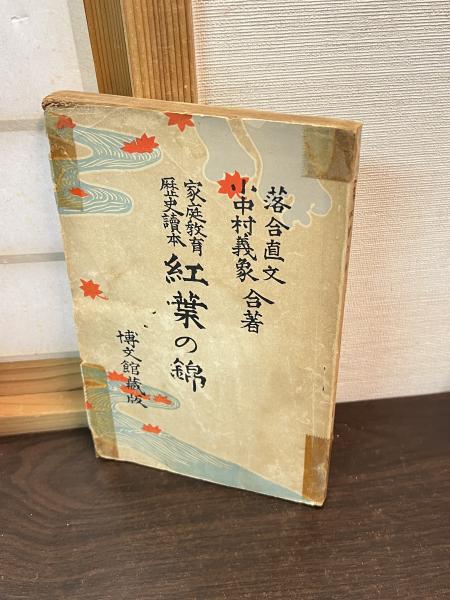 落合直文
小中村義象 合著
家庭教育
歴史讀本
紅葉の錦
博文館蔵版